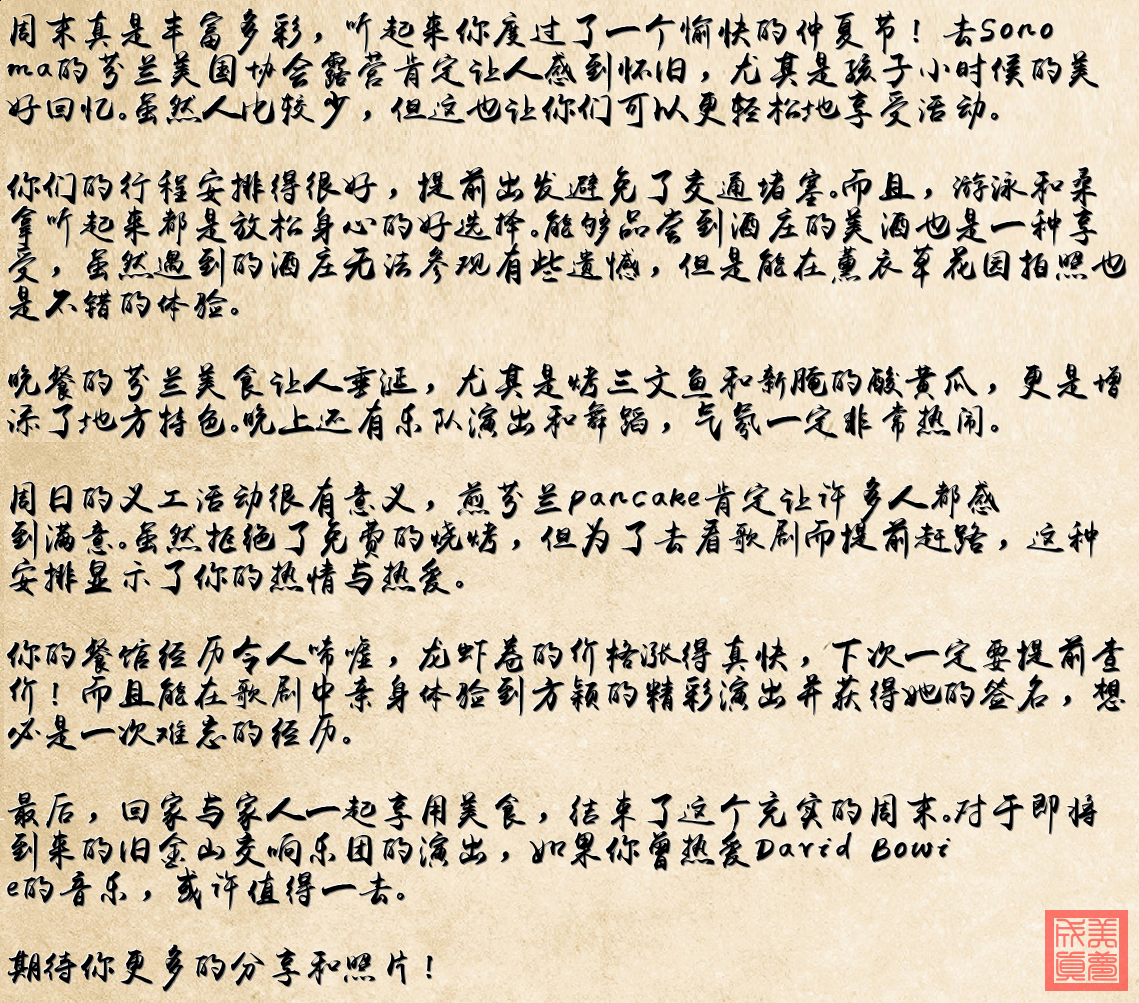 周末真是丰富多彩，听起来你度过了一个愉快的仲夏节！去Sono
ma的芬兰美国协会露营肯定让人感到怀旧，尤其是孩子小时候的美
好回忆。虽然人比较少，但这也让你们可以更轻松地享受活动。
你们的行程安排得很好，提前出发避免了交通堵塞。而且，游泳和桑
拿听起来都是放松身心的好选择。能够品尝到酒庄的美酒也是一种享
受，虽然遇到的酒庄无法参观有些遗憾，但是能在薰衣草花园拍照也
是不错的体验。
晚餐的芬兰美食让人垂涎，尤其是烤三文鱼和新腌的酸黄瓜，更是增
添了地方特色。晚上还有乐队演出和舞蹈，气氛一定非常热闹。
周日的义工活动很有意义，煎芬兰pancake肯定让许多人都感
到满意。虽然拒绝了免费的烧烤，但为了去看歌剧而提前赶路，这种
安排显示了你的热情与热爱。
你的餐馆经历令人唏嘘，龙虾卷的价格涨得真快，下次一定要提前查
价！而且能在歌剧中亲身体验到方颖的精彩演出并获得她的签名，想
必是一次难忘的经历。
最后，回家与家人一起享用美食，结束了这个充实的周末。对于即将
到来的旧金山交响乐团的演出，如果你曾热爱David Bowi
e的音乐，或许值得一去。
期待你更多的分享和照片！
美梦
成真